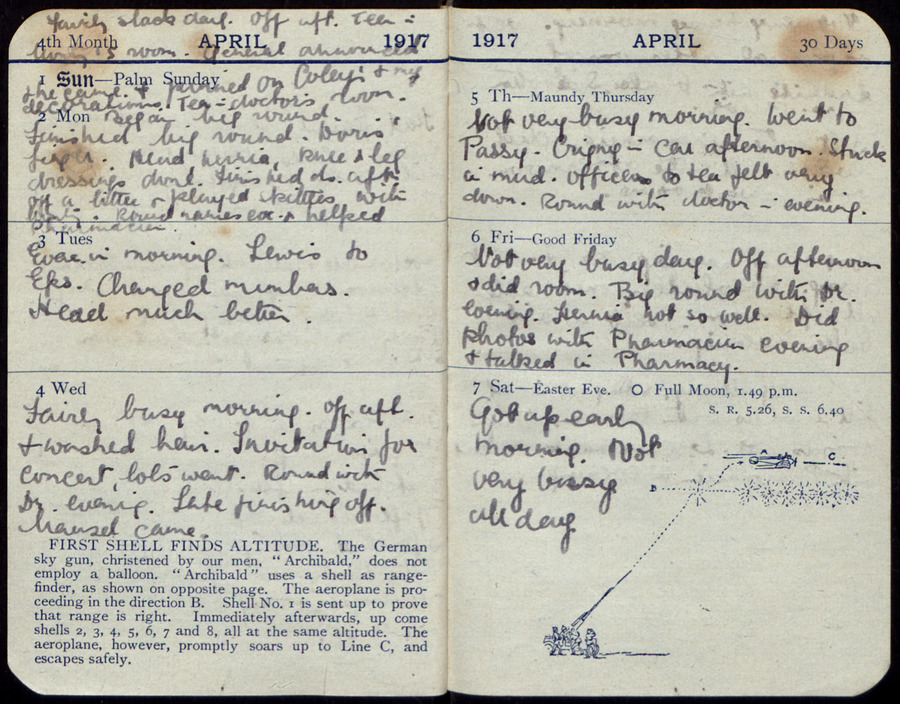 Fairly slack day. Off aft. Tea -
4th Month APRIL 1917
room. General announced
1 Sun—Palm Sunday
the game. & pinned on Coley's & my
decorations. Tea - doctor's room.
2 Mon Began big round.
Finished big round. Doris'
finger. Head hernia, knee & leg
dressings dont. Finished do. aft.
off a bitter & played skittles with
Round helped
Pharmacien.
3 Tues
Evac. in morning. Lewis to
Eps. Changed numbers.
Head much better.
4 Wed
Fairly busy morning. Off aft.
& washed hair. Invitation for
concert, lots went. Round with
Dr. evening. Late finishing off.
Mansel came.
FIRST SHELL FINDS ALTITUDE. The German
sky gun, christened by our men, "Archibald," does not
employ a balloon. "Archibald" uses a shell as range-
finder, as shown on opposite page. The aeroplane is pro-
ceeding in the direction B. Shell No. 1 is sent up to prove
that range is right. Immediately afterwards, up come
shells 2, 3, 4, 5, 6, 7 and 8, all at the same altitude. The
aeroplane, however, promptly soars up to Line C, and
escapes safely.
1917 APRIL 30 Days
5 Th—Maundy Thursday
Not very busy morning. Went to
Passy - Crigny - car afternoon. Stuck
in mud. Officers to tea felt very
down. Round with doctor - evening.
6 Fri—Good Friday
Not very busy day. Off afternoon
& did room. Big round with Dr.
evening. Hernia not so well. Did
photos with Pharmacien evening
& talked in Pharmacy.
7 Sat—Easter Eve. O Full Moon, 1.49 p.m.
S. R. 5.26, S. S. 6.40
Got up early
morning. Not
very busy
all day
A
C
B